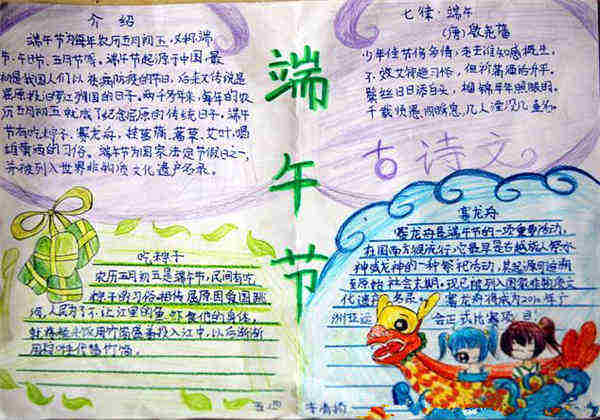 介绍
端午节为每年农历五月初五,又称端
节、午日节、五月节等。端午节起源于中国,最
初是我国人们以祛病防疫的节日,后来又传说是
屈原投汨罗江殉国的日子。两千多年来,每年的农
历五月初五就成了纪念屈原的传统日子。端午
节有吃粽子,赛龙舟,挂菖蒲、蒿草、艾叶,喝
雄黄酒的习俗。端午节为国家法定节假日之一,
并被列入世界非物质文化遗产名录。
端午节
七律·端午
(唐)殷尧藩
少年佳节倍多情,老去谁知感慨生。
不效艾符趋习俗,但祈蒲酒话升平。
鬓丝日日添白头,榴锦年年照眼明。
千载贤愚同瞬息,几人湮没几垂名。
古诗文
吃粽子
农历五月初五是端午节,民间有吃
粽子的习俗相传屈原因爱国跳
河,人民为了不让江里的鱼虾食他们的身体,
投入江中,以后渐渐
用粽叶代替竹筒。
赛龙舟
赛龙舟是端午节的一项重要活动,
在国南方很流行,它最早是古越族人祭水
神或龙神的一种祭祀活动,其起源可追溯
至原始社会末期。现已被列入国家非物质文
化遗产名录。赛龙舟被成为2010年广
州亚运会正式比赛项目!
五四